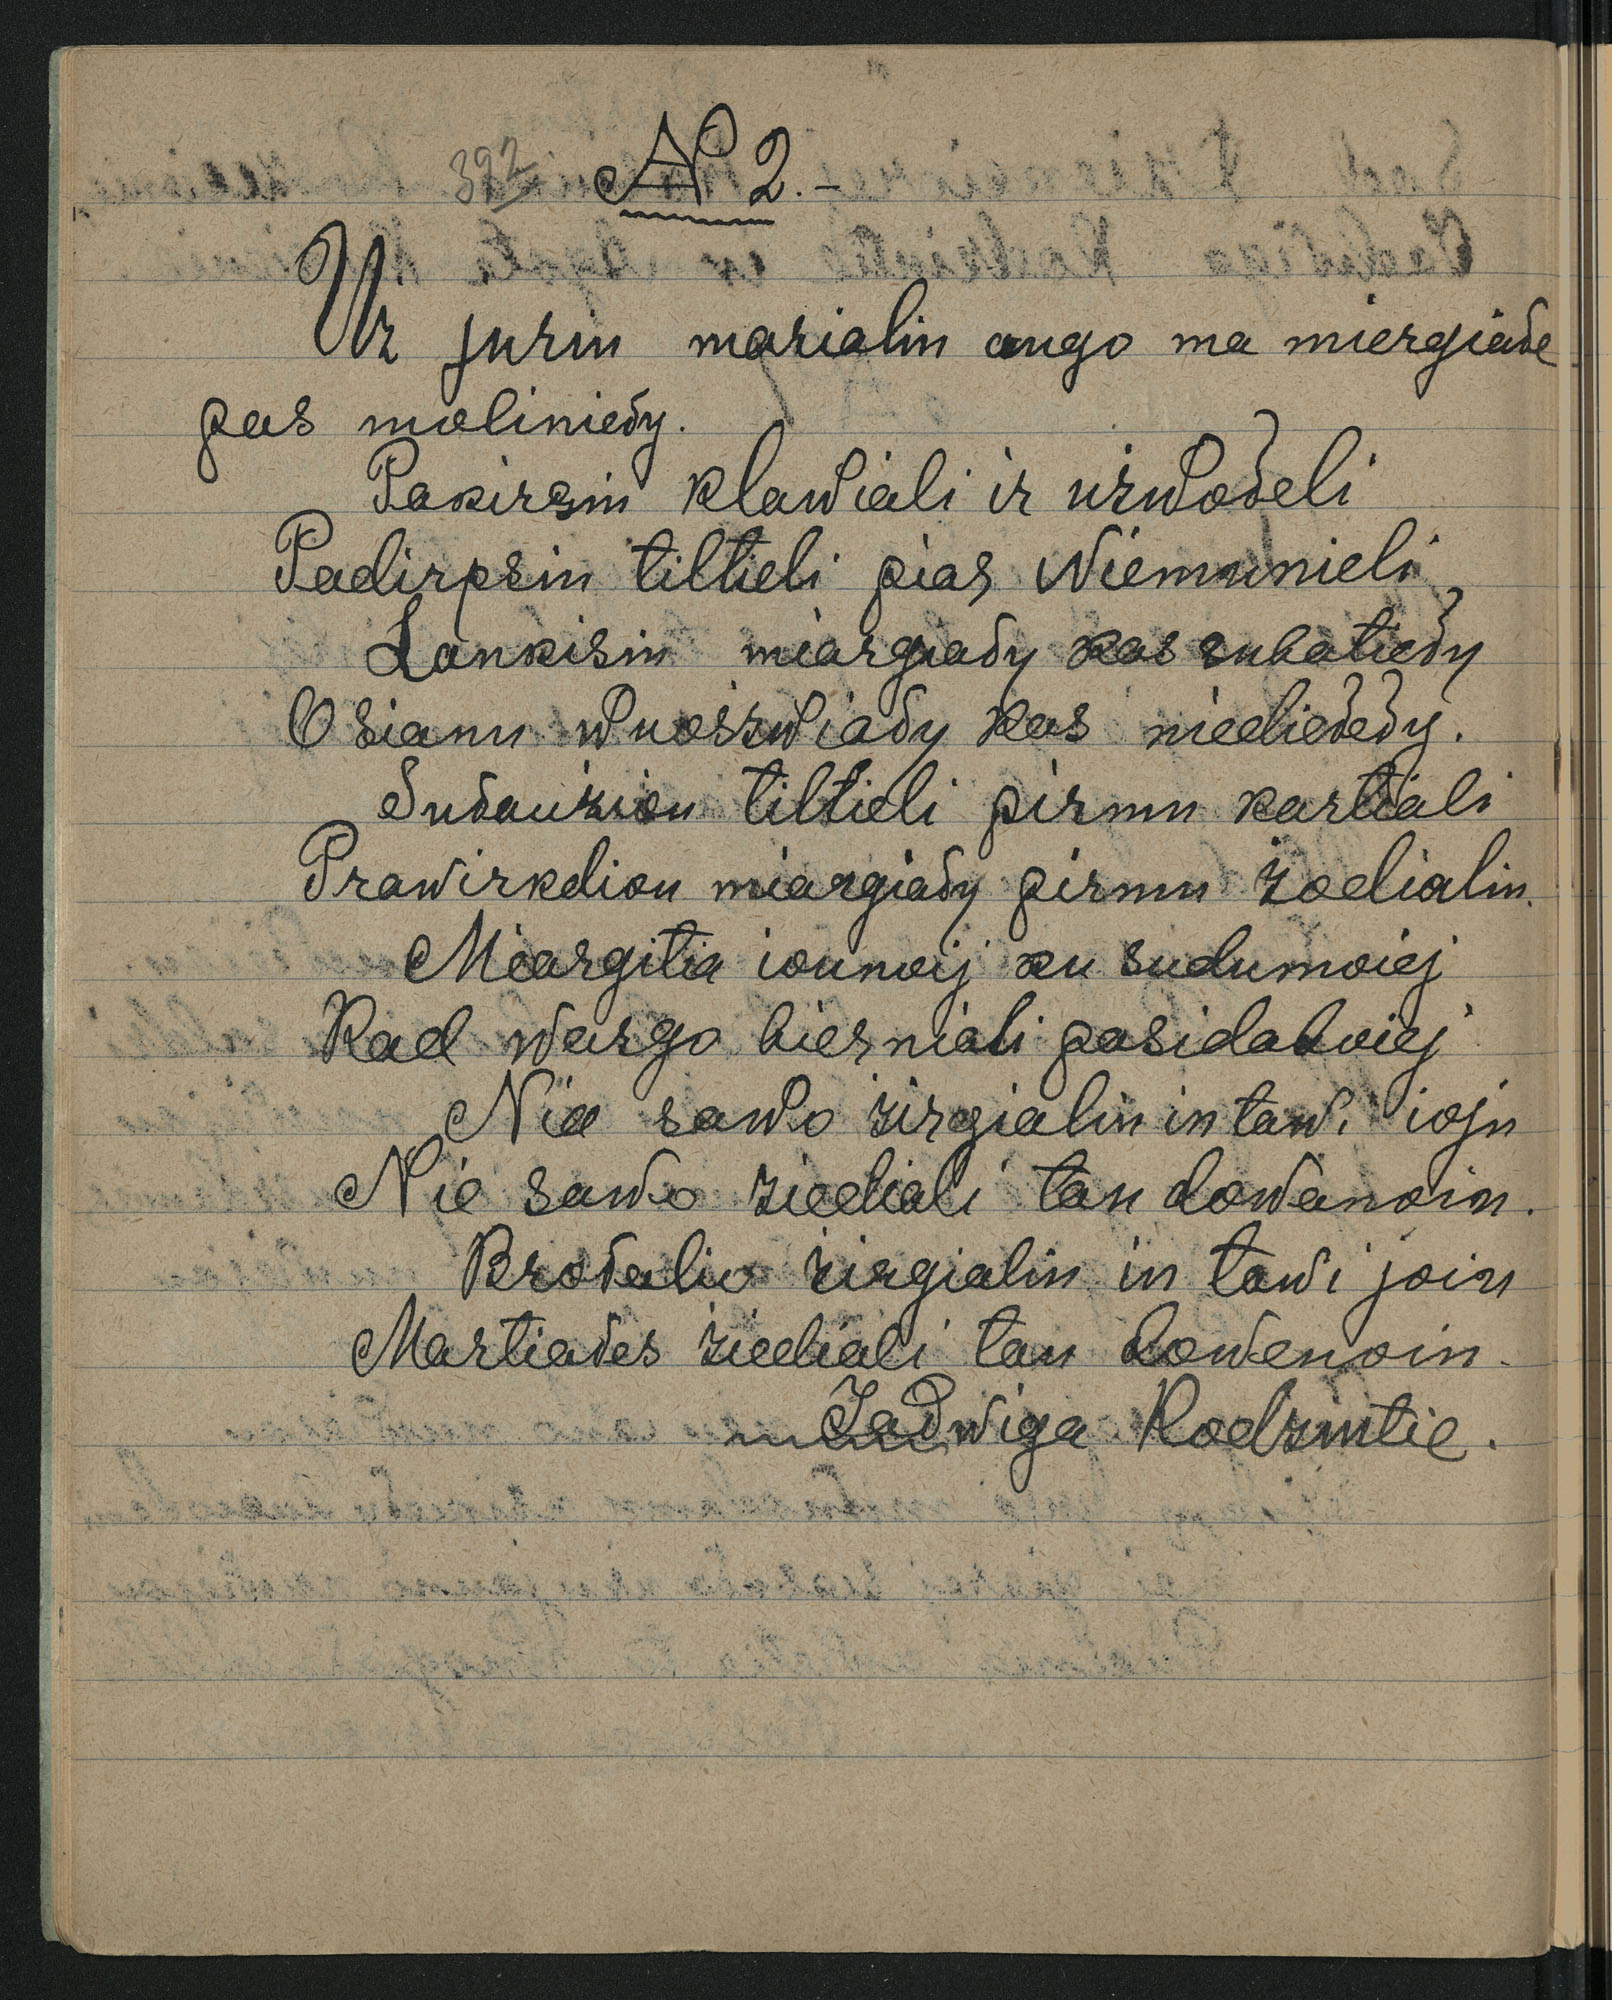 392 № 2.-
Uż jurin marialin augo ma miergiałe
pas moliniały.
Pakirsin klawiali ir użwołeli
Padirpsin tiltieli pias Niemunieli
Lankisin miargiały kas subatiały
Osianu wuoszwiały kas niedielely.
Sudaużiou tiltieli pirmu kartiali
Prawirkdiou miargiały pirmu żodialin.
Miargitia iounoij ku sudumoiej
Kad wargo bierniali pasidaboiej
Nia sawo żirgialin in tawi ioju
Nie sawo żiediali tau dowanoiu.
Brołaliu żirgialin in tawi joiu
Martiałes żiediali tau dowenoiu.
Jadwiga Rodzintie.